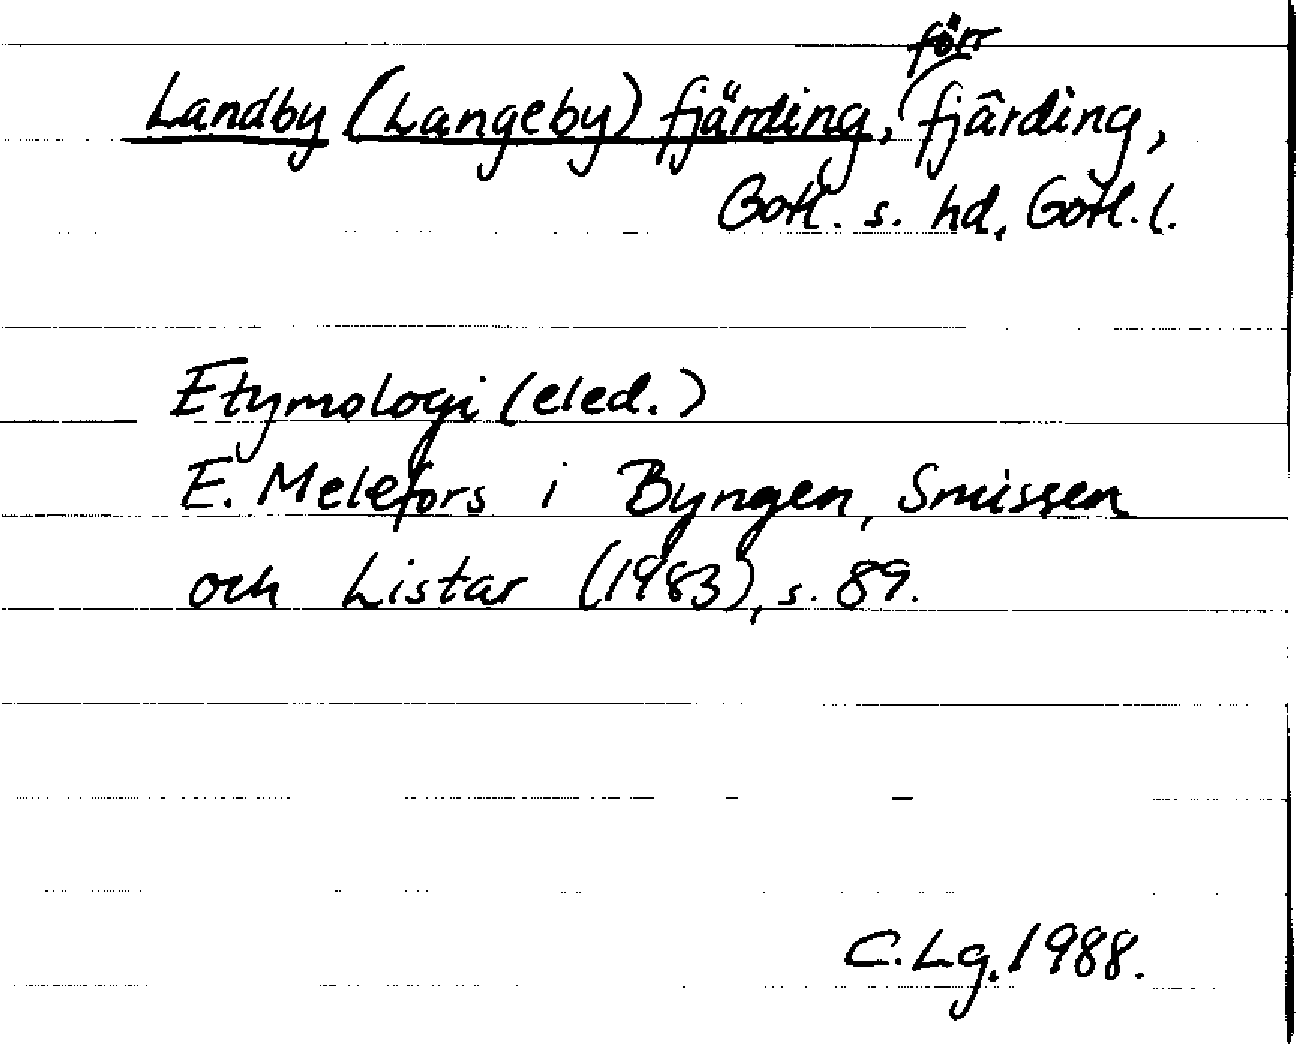 Landby (Langeby) fjärding, förr fjärding,
Gotl. s. hd, Gotl. l.
Etymologi (eled.)
E. Melefors i Byngen, Smissen
och Listar (1983), s. 89.
C. Lg. 1988.